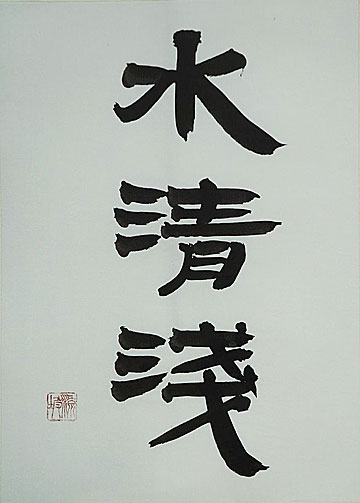 水清淺